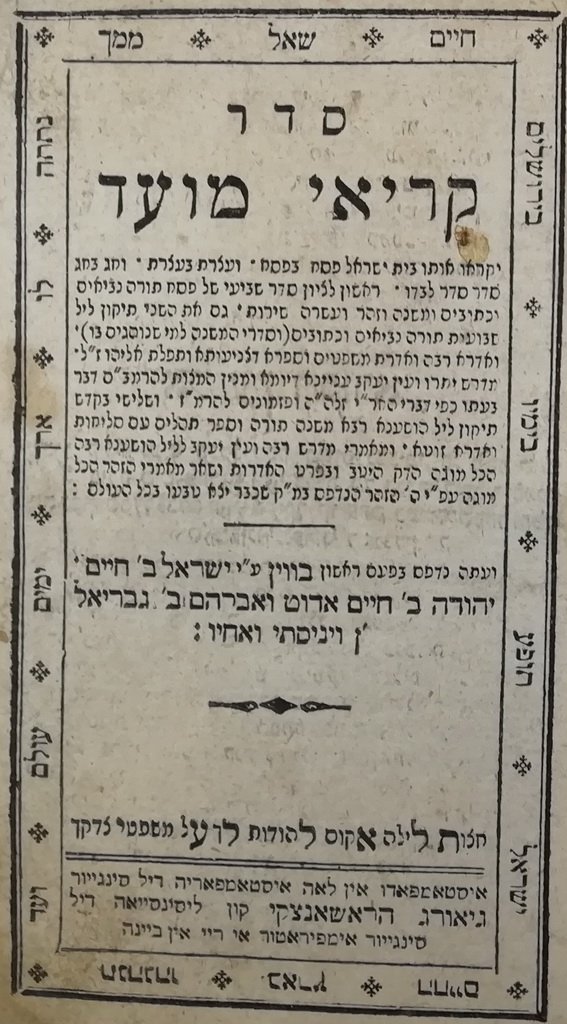 חיים שאל ממך
נתתה לו ארך ימים עולם ועד
סדר
קריאי מועד
יקראו אותו בית ישראל פסח בפסח ׳ ועצרת בעצרת ׳ וחג בחג
סדר סדר לבדו ׳ ראשון לציון סדר שביעי של פסח תורה נביאים
וכתובים ומשנה וזהר ועשרה שירות ׳ גם את השני תיקון ליל
שבועות תורה נביאים וכתובים (וסדרי המשנה למי שנוהגים בו) ׳
ואדרא רבה ואדרת משפטים וספרא דצניעותא ותפלת אליהו ז״ל ׳
מדרש יתרו ועין יעקב עניינא דיומא ומנין המצות להרמב״ם דבר
בעתו כפי דברי האר״י זלה״ה ופזמונים להרמ״ז ׳ ושלישי בקדש
תיקון ליל הושענא רבא משנה תורה וספר תהלים עם סליחות
ואדרא זוטא ׳ ומאמרי מדרש רבה ועין יעקב לליל הושענא רבה
הכל מוגה הדק היטב ובפרט האדרות ושאר מאמרי הזהר הכל
מוגה עפ״י ה׳ הזהר הנדפס במ״ק שכבר יצא טבעו בכל העולם :
ועתה נדפס בפעם ראשון בווין ע״י ישראל ב׳ חיים ׳
יהודה ב׳ חיים אדוט ואברהם ב׳ גבריאל
׳ן ויניסתי ואחיו :
חצות לילה אקום להודות לך על משפטי צדקך
איסטאמפאדו אין לאה איסטאמפאריה דיל סינגייור
גיאורג הראשאנצקי קון ליסינסייאה דיל
סינגייור אימפיראטור אי ריי אין ביינה
בירושלים בימיו תופע ישראל
החיים בארץ